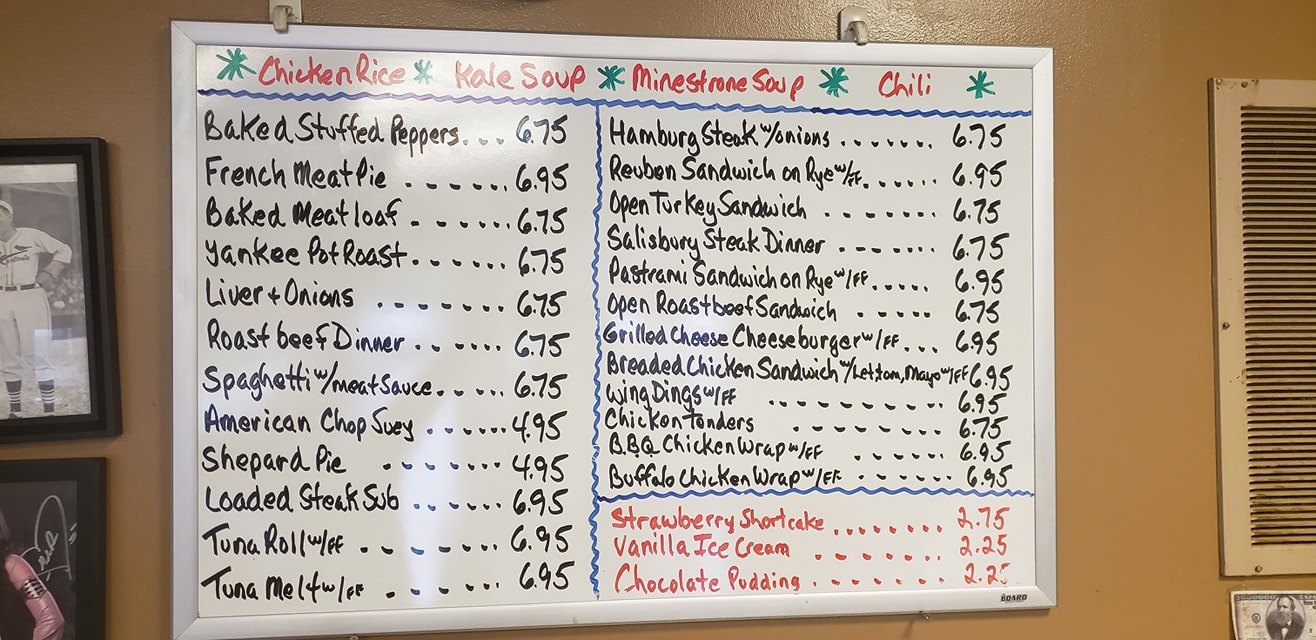 * Chicken Rice * Kale Soup * Minestrone Soup * Chili *
Baked Stuffed Peppers... 6.75
French Meat Pie ...... 6.95
Baked Meatloaf ...... 6.75
Yankee Pot Roast ...... 6.75
Liver + Onions ....... 6.75
Roast beef Dinner ...... 6.75
Spaghetti w/meat sauce.... 6.75
American Chop Suey ...... 4.95
Shepard Pie ....... 4.95
Loaded Steak Sub ...... 6.95
Tuna Roll w/FF ....... 6.95
Tuna Melt w/FF ...... 6.95
Hamburg Steak w/onions ...... 6.75
Reuben Sandwich on Rye w/FF...... 6.95
Open Turkey Sandwich ....... 6.75
Salisbury Steak Dinner ....... 6.75
Pastrami Sandwich on Rye w/FF..... 6.95
Open Roastbeef Sandwich ..... 6.75
Grilled Cheese Cheeseburger w/FF... 6.95
Breaded Chicken Sandwich w/Let, tom, Mayo w/FF 6.95
Wing Dings w/FF ......... 6.95
Chicken Tenders ........ 6.75
B.B.Q Chicken Wrap w/FF ...... 6.95
Buffalo Chicken Wrap w/FF ....... 6.95
Strawberry Shortcake ........ 2.75
Vanilla Ice Cream ....... 2.25
Chocolate Pudding ....... 2.25
BOARD